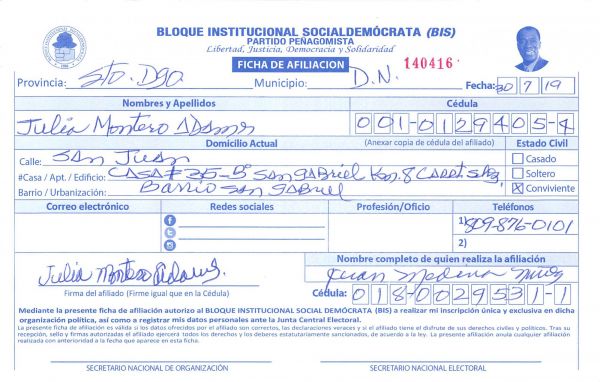 BLOQUE INSTITUCIONAL SOCIALDEMÓCRATA (BIS)
PARTIDO PEÑAGOMISTA
Libertad, Justicia, Democracia y Solidaridad
FICHA DE AFILIACION 140416
Provincia: Sto. Dgo Municipio: D.N. Fecha: 30 7 19
Nombres y Apellidos Cédula
Julia Montero Adames 001-0129405-4
Domicilio Actual (Anexar copia de cédula del afiliado) Estado Civil
Calle: San Juan Casado
#Casa / Apt. / Edificio: CASA # 35-B San GABRIEL Km. 8 Soltero
Barrio / Urbanización: Barrio San GABRIEL X Conviviente
Correo electrónico Redes sociales Profesión/Oficio Teléfonos
1) 809-876-0101
2)
Nombre completo de quien realiza la afiliación
Julia Montero Adames. Juan Medina
Firma del afiliado (Firme igual que en la Cédula) Cédula: 018-0029531-1
Mediante la presente ficha de afiliación autorizo al BLOQUE INSTITUCIONAL SOCIAL DEMÓCRATA (BIS) a realizar mi inscripción única y exclusiva en dicha
organización política, así como a registrar mis datos personales ante la Junta Central Electoral.
La presente ficha de afiliación es válida si los datos ofrecidos por el afiliado son correctos, las declaraciones veraces y si el afiliado tiene el disfrute de sus derechos civiles y políticos. Tras su
recepción, sello y firmas autorizadas el afiliado ejercerá todos los derechos y los deberes estatutariamente sancionados, de acuerdo a la ley. La presente afiliación anula cualquier afiliación
realizada con anterioridad a la fecha que aparece en esta ficha.
SECRETARIO NACIONAL DE ORGANIZACIÓN SECRETARIO NACIONAL ELECTORAL